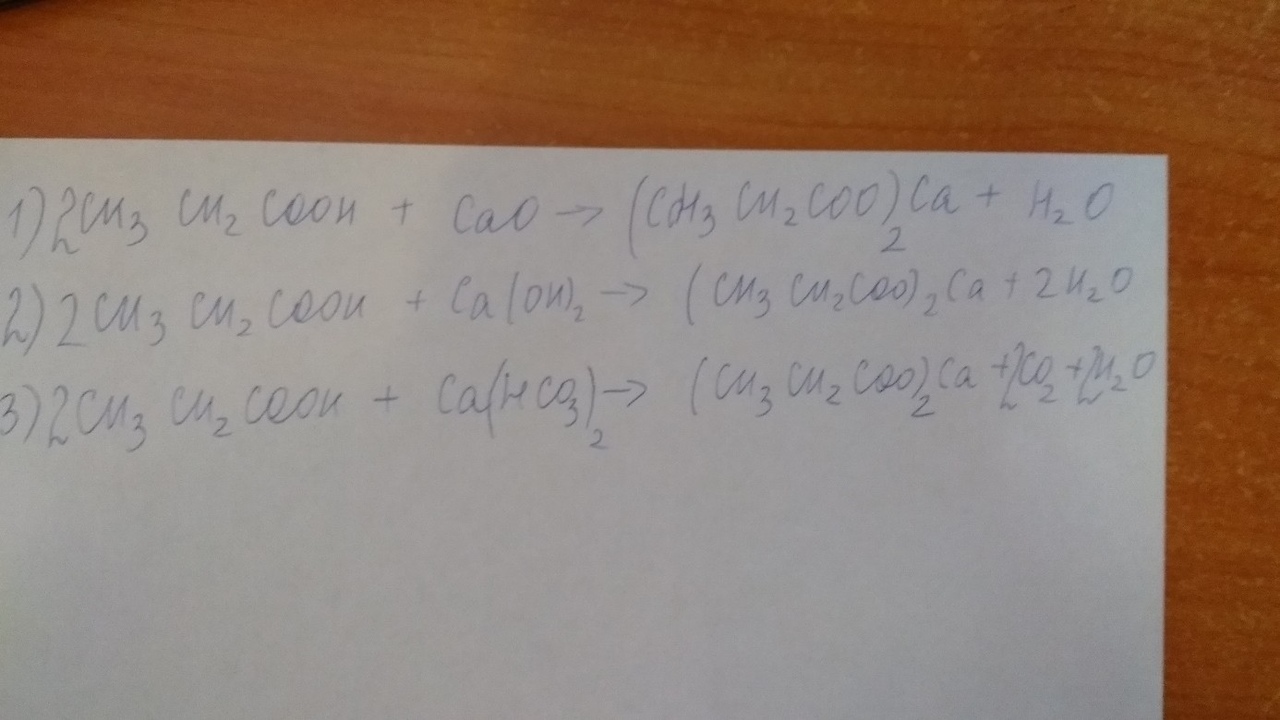 1) 2CH₃ CH₂ COOH + CaO → (CH₃ CH₂COO)₂Ca + H₂O
2) 2CH₃ CH₂ COOH + Ca(OH)₂ → (CH₃ CH₂COO)₂Ca + 2H₂O
3) 2CH₃ CH₂ COOH + Ca(HCO₃)₂ → (CH₃ CH₂ COO)₂Ca + 2CO₂ + 2H₂O